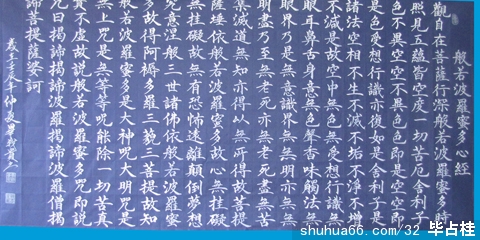 般若波羅蜜多心經
觀自在菩薩行深般若波羅蜜多時
照見五蘊皆空度一切苦厄舍利子
色不異空空不異色色即是空空即
是色受想行識亦復如是舍利子是
諸法空相不生不滅不垢不淨不增
不減是故空中無色無受想行識無
眼耳鼻舌身意無色聲香味觸法無
眼界乃至無意識界無無明亦無無
明盡乃至無老死亦無老死盡無苦
集滅道無知亦無得以無所得故菩提
薩埵依般若波羅蜜多故心無挂礙
無挂礙故無有恐怖遠離顛倒夢想
究意涅般三世諸佛依般若波羅蜜
多故得阿耨多羅三藐三菩提故知
般若波羅蜜多是大神咒大明咒是
無上咒是無等等咒能除一切苦真
實不虛故說般若波羅蜜多咒即說
咒曰揭諦揭諦波羅揭諦波羅僧揭
諦菩提薩婆訶
歲壬辰年仲夏畢
shuhua66.com/32 毕占桂